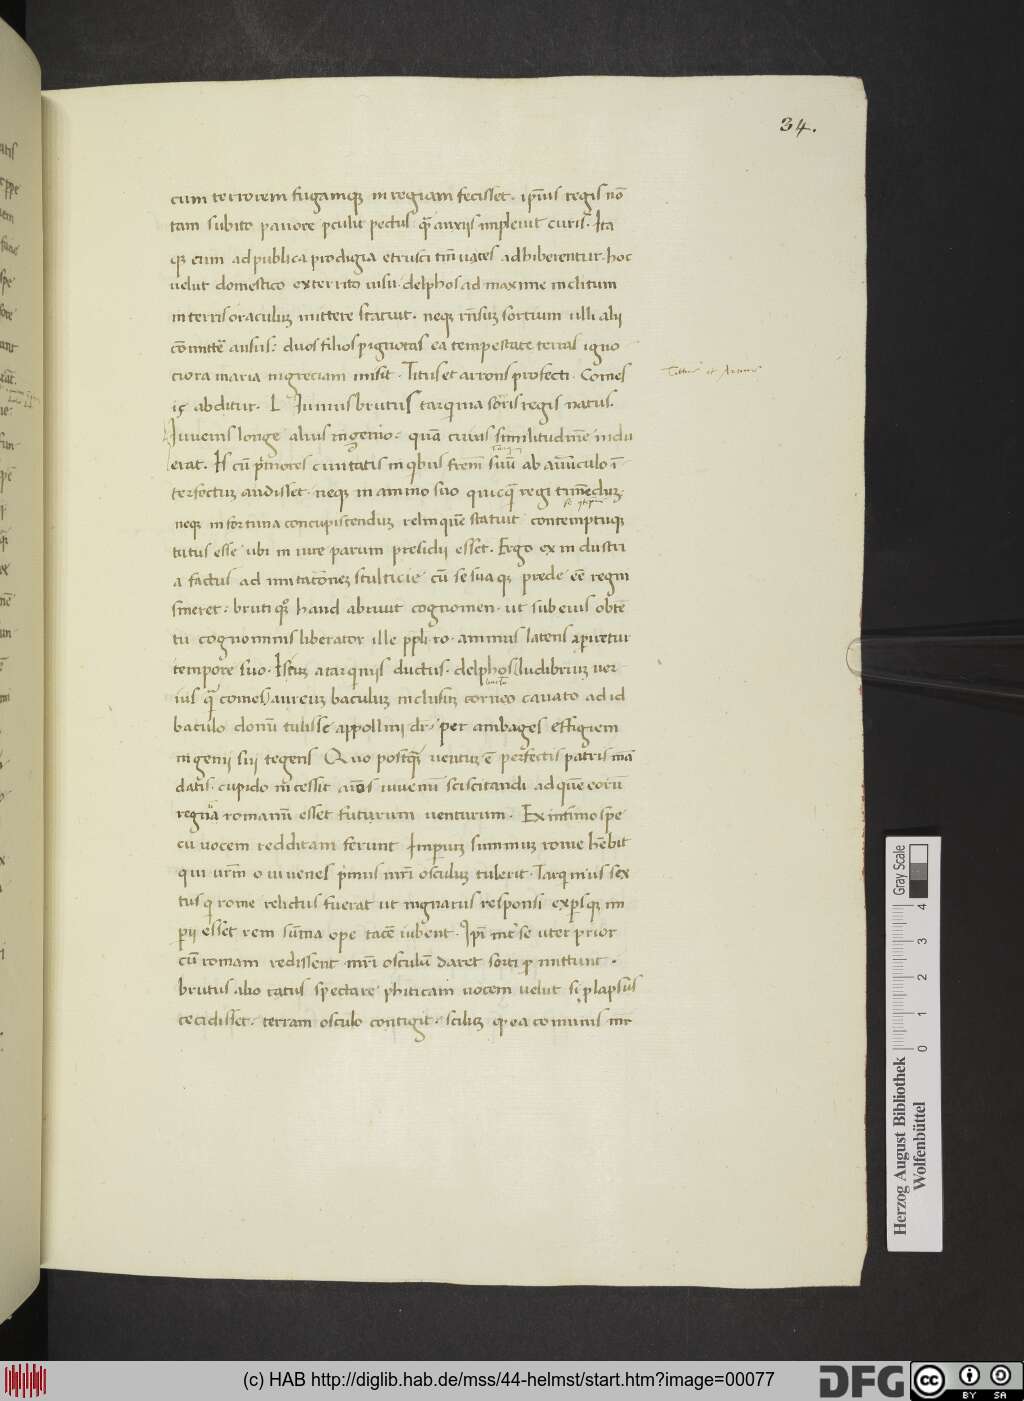 34.
cum terrorem fugamqꝫ in regiam fecisset · ip̄ius regis nō
tam subito pauore ꝑculit pectus q̄ anxiis impleuit curis · Ita
qꝫ cum ad publica prodigia etrusci tm̄ uates adhiberentur · hoc
uelut domestico exterrito uisu · delphos ad maxime inclitum
in terris oraculuꝫ mittere statuit · neqꝫ rn̄suꝫ sortium ulli alii
cōmittē ausus : duos filios ꝑ ignotas ea tempestate terras igno
ciora maria in greciam misit · Titus et arrons profecti · Comes
iis abditur · L Iunius brutus tarqina soris regis natus ·
Titus et Aruns
Iuuenis longe alius ingenio · quā cuius similitudinē indu
erat · Is cū pͥmores ciuitatis in qͥbus frem̄ suū ab auūculo ī
terfectuꝫ audisset · neqꝫ in animo suo quicq̄ regi timēduꝫ
neqꝫ in fortuna concupiscenduꝫ relinquē statuit contemptuqꝫ
tutus esse ubi in iure parum presidii esset · Ergo ex industri
a factus ad imitatōneꝫ stulticie cū se suaqꝫ prede eē regni
sineret · bruti qͦqꝫ haud abnuit cognomen · ut sub eius obtē
tu cognominis liberator ille ppli ro · animus latens aꝑiretur
tempore suo · Istuꝫ a tarqiniis ductus · delphos ludibriuꝫ uer
ius q̄ comes aureuꝫ baculuꝫ inclusuꝫ corneo cauato ad id
baculo donū tulisse appollini dr̄ · per ambages effigiem
ingenii sui tegens Quo postq̄ uentuꝫ ē perfectis patris mā
datis · cupido incessit aīos iuuenū sciscitandi ad quē eorū
regnū romanū esset futurum uenturum · Ex infimo spe
cu uocem redditam ferunt Imperiuꝫ summuꝫ rome hēbit
qui urm̄ o iuuenes pͥmus mr̄i osculuꝫ tulerit · Tarqinius sex
tus qͥ rome relictus fuerat ut ingnarus responsi exꝑsqꝫ im
ꝑii esset rem sūma ope tacē iubent · Ip̄i int̄ se uter prior
cū romam redissent mr̄i osculū daret sorti ꝑmittunt ·
brutus alio ratus spectare phiticam uocem uelut si ꝓlapsus
cecidisset · terram osculo contigit · scilicꝫ qͩ ea comunis mr̄
Herzog August Bibliothek
Wolfenbüttel
Gray Scale
0 1 2 3 4
(c) HAB http://diglib.hab.de/mss/44-helmst/start.htm?image=00077
DFG
cc BY SA